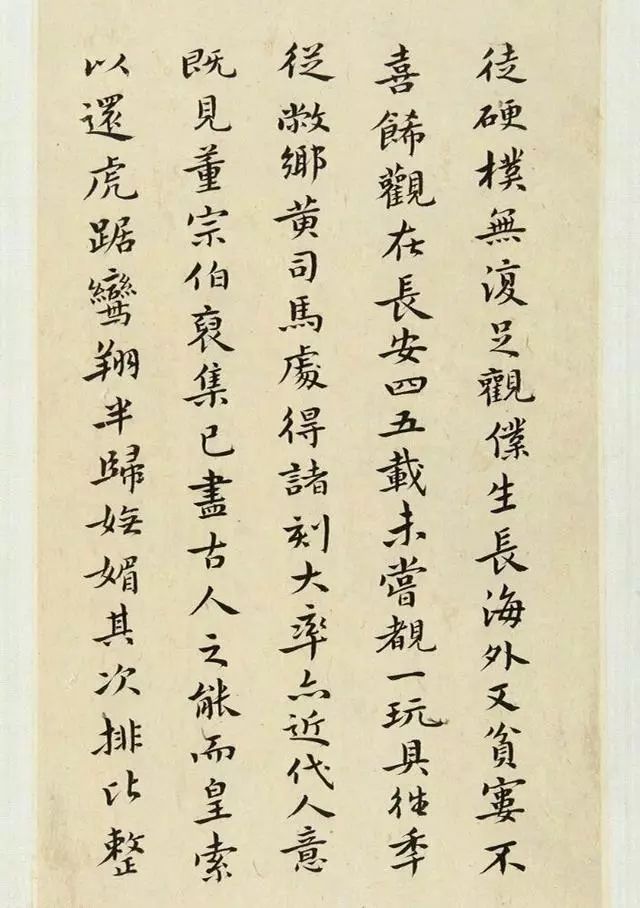 徒硬樸無復足觀僕生長海外又貧寠不
喜餙觀在長安四五載未嘗覩一玩具徃季
從敝鄉黄司馬處得諸刻大率亦近代人意
既見董宗伯裒集已盡古人之能而皇索
以還虎踞鸞翔半歸娬媚其次排比整